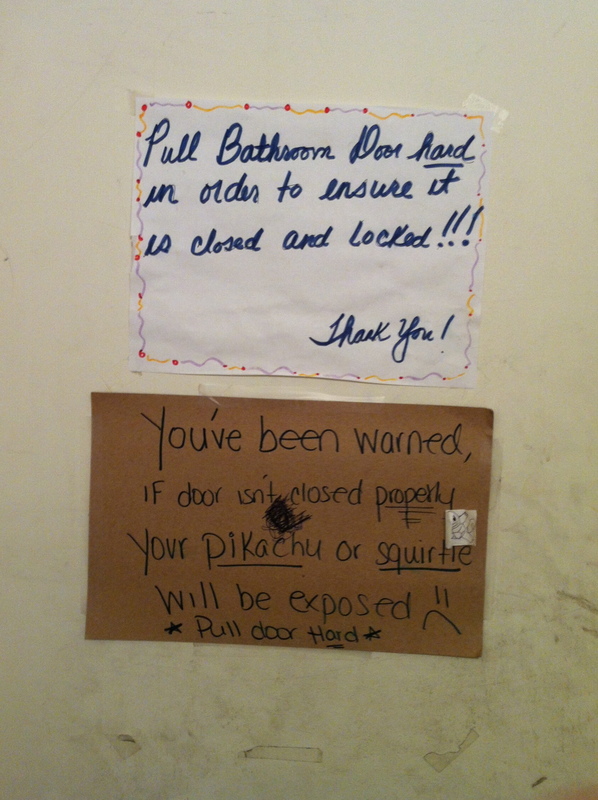 Pull Bathroom Door hard
in order to ensure it
is closed and locked!!!
Thank You!
You've been warned,
if door isn't closed properly
Your pikachu or squirtle
will be exposed
* Pull door Hard *